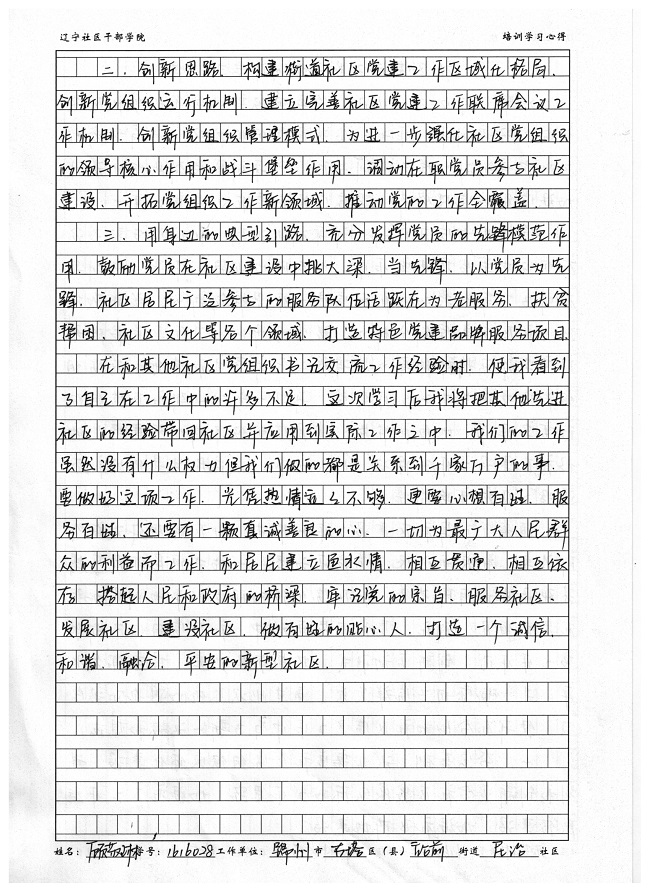 辽宁社区干部学院 培训学习心得
二、创新思路、构建街道社区党建工作区域化格局、
创新党组织运行机制、建立完善社区党建工作联席会议工
作机制、创新党组织管理模式、为进一步强化社区党组织
的领导核心作用和战斗堡垒作用、调动在职党员参与社区
建设、开拓党组织工作新领域、推动党的工作全覆盖。
三、用身边的典型引路、充分发挥党员的先锋模范作
用、鼓励党员在社区建设中挑大梁、当先锋、以党员为先
锋、社区居民广泛参与的服务队伍活跃在为老服务、扶贫
帮困、社区文化等各个领域、打造特色党建品牌服务项目
在和其他社区党组织书记交流工作经验时、使我看到
了自己在工作中的许多不足、这次学习后我将把其他先进
社区的经验带回社区并应用到实际工作之中、我们的工作
虽然没有什么权力但我们做的都是关系到千家万户的事、
要做好这项工作、光凭热情是不够、更要心想百姓、服
务百姓、还要有一颗真诚善良的心、一切为最广大人民群
众的利益而工作、和居民建立鱼水情、相互贯通、相互依
存、搭起人民和政府的桥梁、牢记党的宗旨、服务社区、
发展社区、建设社区、做百姓的贴心人、打造一个诚信、
和谐、融合、平安的新型社区.
姓名： 学号：1616028 工作单位：锦州 市 古塔 区（县） 站前 街道 民治 社区